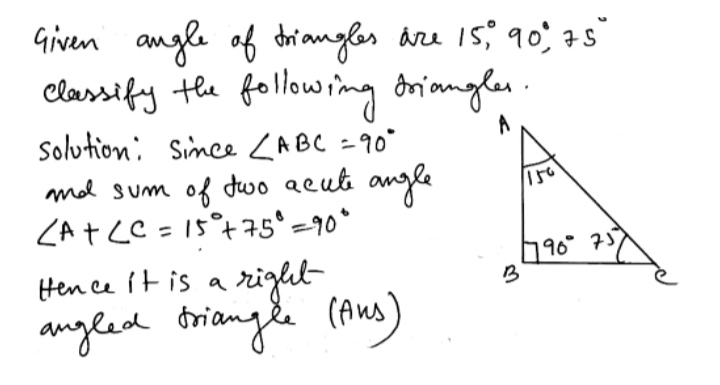 Given angle of triangles are 15°, 90°, 75°
classify the following triangles.
Solution: Since ∠ABC = 90°
and sum of two acute angle
∠A + ∠C = 15° + 75° = 90°
Hence it is a right-
angled triangle (Ans)
A
15°
90° 75°
B
C